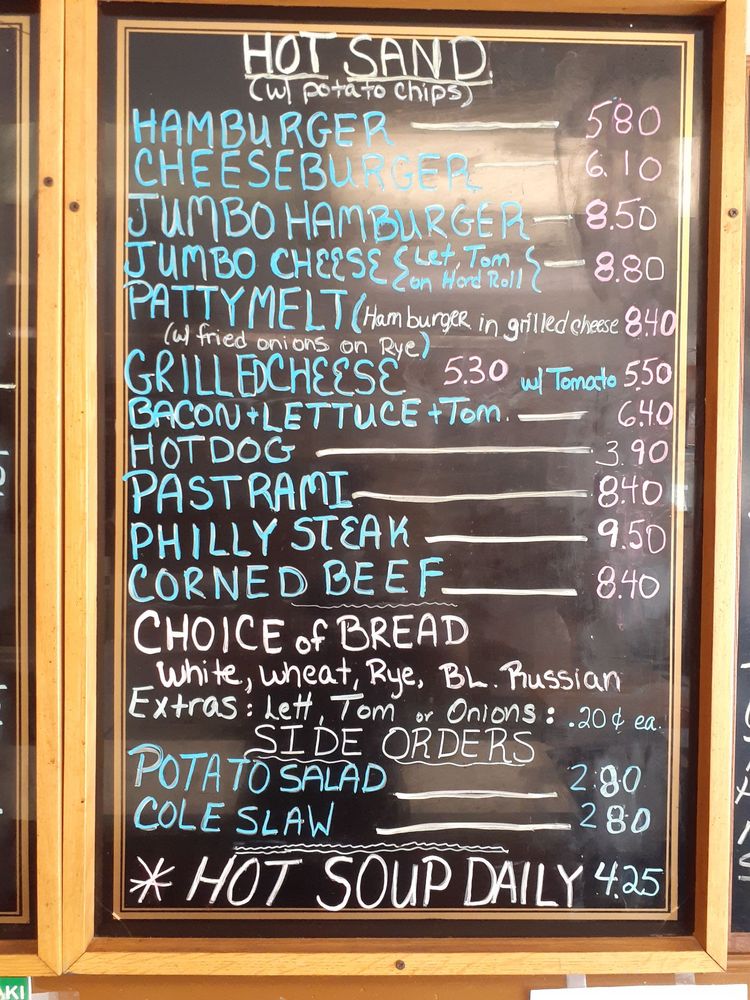 HOT SAND.
(w/ potato chips)
HAMBURGER 5.80
CHEESEBURGER 6.10
JUMBO HAMBURGER 8.50
JUMBO CHEESE { Let, Tom on Hard Roll { 8.80
PATTYMELT (Hamburger in grilled cheese 8.40
(w/ fried onions on Rye)
GRILLED CHEESE 5.30 w/ Tomato 5.50
BACON + LETTUCE + Tom. 6.40
HOTDOG 3.90
PASTRAMI 8.40
PHILLY STEAK 9.50
CORNED BEEF 8.40
CHOICE of BREAD
White, Wheat, Rye, BL. Russian
Extras: Lett, Tom or Onions: .20¢ ea.
SIDE ORDERS
POTATO SALAD 2.80
COLE SLAW 2.80
* HOT SOUP DAILY 4.25